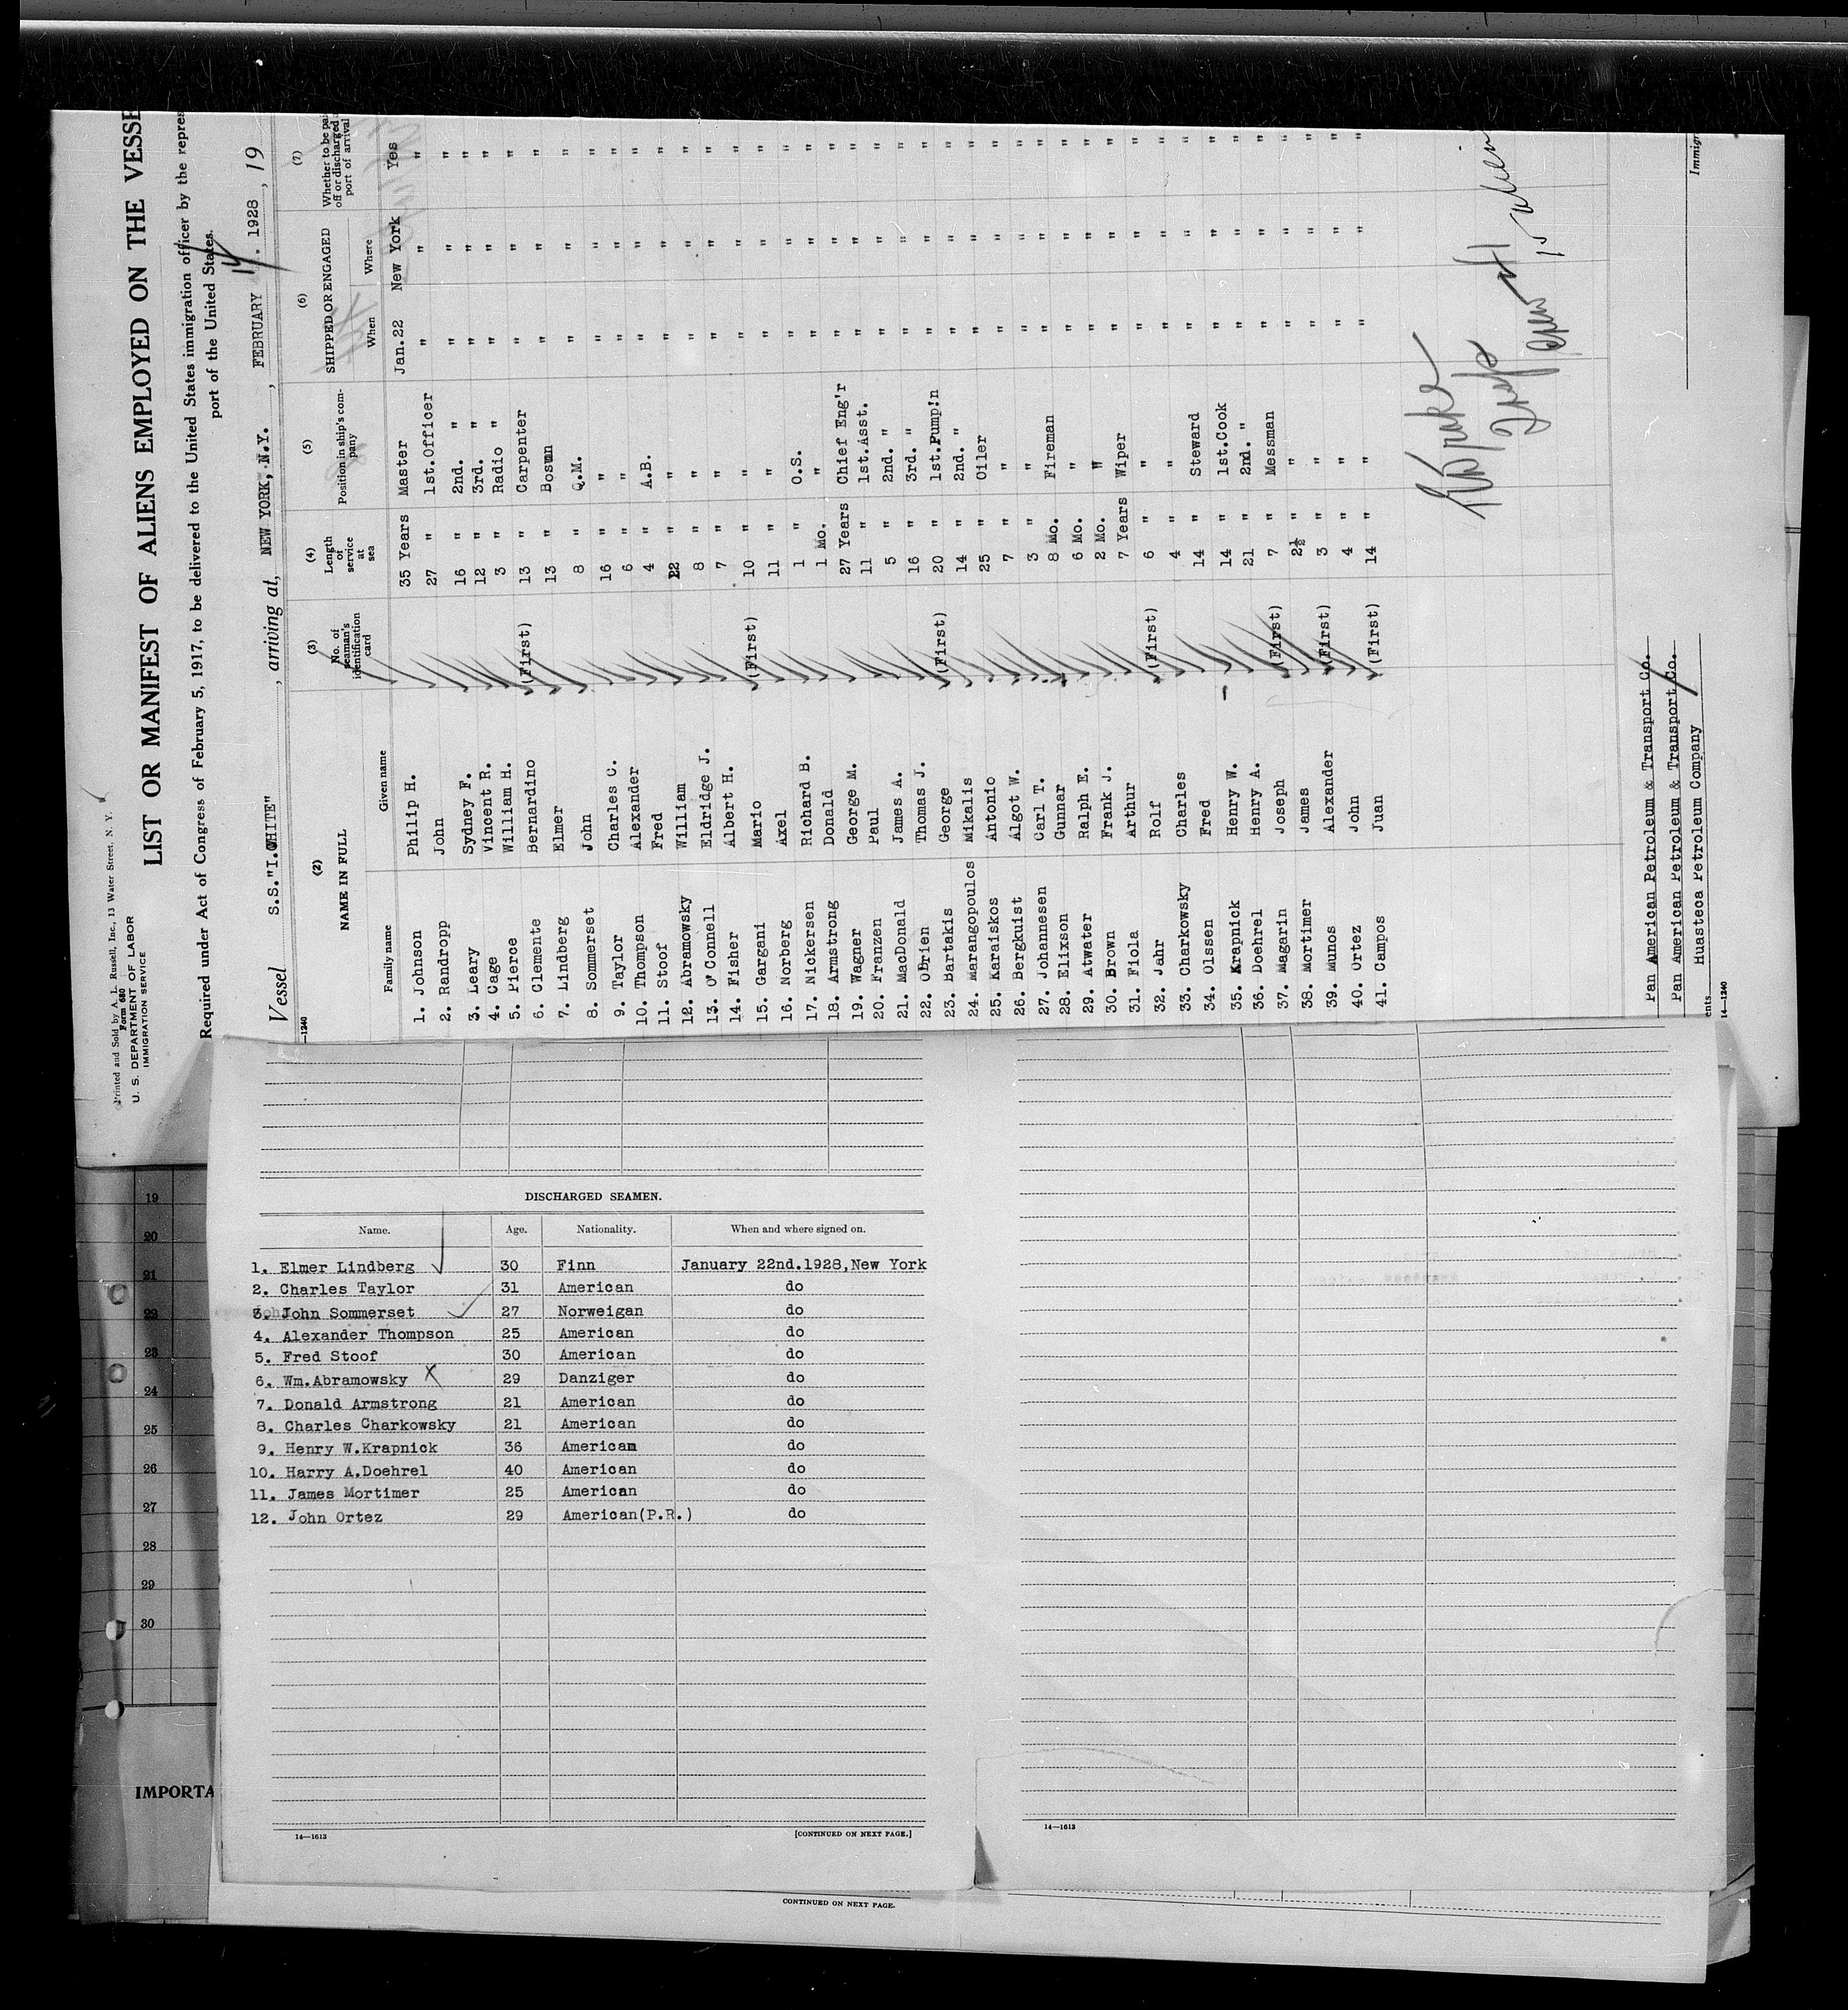 Printed and Sold by A. L. Russell, Inc., 13 Water Street, N. Y.
Form 680
U. S. DEPARTMENT OF LABOR
IMMIGRATION SERVICE
LIST OR MANIFEST OF ALIENS EMPLOYED ON THE VESSE
Required under Act of Congress of February 5, 1917, to be delivered to the United States immigration officer by the repres
port of the United States.
Vessel S.S."I.C.WHITE" , arriving at, NEW YORK, N.Y. , FEBRUARY 14. 1928 , 19
—1240
(2) (3) (4) (5) (6) (7)
NAME IN FULL
Family name Given name
No. of seaman's identification card
Length of service at sea
Position in ship's company
SHIPPED OR ENGAGED
When Where
Whether to be pai
off or discharged
port of arrival
1. Johnson Philip H. 35 Years Master Jan.22 New York Yes
2. Randropp John 27 " 1st.Officer " " "
3. Leary Sydney F. 16 " 2nd. " " " "
4. Cage Vincent R. 12 " 3rd. " " " "
5. Pierce William H. 3 " Radio " " " "
6. Clemente Bernardino (First) 13 " Carpenter " " "
7. Lindberg Elmer 13 " Bosun " " "
8. Sommerset John 8 " Q.M. " " "
9. Taylor Charles C. 16 " " " " "
10. Thompson Alexander 6 " " " " "
11. Stoof Fred 4 " A.B. " " "
12. Abramowsky William 22 " " " " "
13. O'Connell Eldridge J. 8 " " " " "
14. Fisher Albert H. 7 " " " " "
15. Gargani Mario (First) 10 " " " " "
16. Norberg Axel 11 " " " " "
17. Nickersen Richard B. 1 " O.S. " " "
18. Armstrong Donald 1 Mo. " " " "
19. Wagner George M. 27 Years Chief Eng'r " " "
20. Franzen Paul 11 " 1st.Asst. " " "
21. MacDonald James A. 5 " 2nd. " " " "
22. OBrien Thomas J. 16 " 3rd. " " " "
23. Bartakis George (First) 20 " 1st.Pump!n " " "
24. Marangopoulos Mikalis 14 " 2nd. " " " "
25. Karaiskos Antonio 25 " Oiler " " "
26. Bergkuist Algot W. 7 " " " " "
27. Johannesen Carl T. 3 " " " " "
28. Elixson Gunnar 8 Mo. Fireman " " "
29. Atwater Ralph E. 6 Mo. " " " "
30. Brown Frank J. 2 Mo. " " " "
31. Fiola Arthur 7 Years Wiper " " "
32. Jahr Rolf (First) 6 " " " " "
33. Charkowsky Charles 4 " " " " "
34. Olssen Fred 14 " Steward " " "
35. Krapnick Henry W. 14 " 1st.Cook " " "
36. Doehrel Henry A. 21 " 2nd. " " " "
37. Magarin Joseph (First) 7 " Messman " " "
38. Mortimer James 2½ " " " " "
39. Munos Alexander (First) 3 " " " " "
40. Ortez John 4 " " " " "
41. Campos Juan (First) 14 " " " " "
Pan American Petroleum & Transport Co.
Pan American Petroleum & Transport Co.
Huasteca Petroleum Company
ents
14—1240
Immigr
DISCHARGED SEAMEN.
Name. Age. Nationality. When and where signed on.
1. Elmer Lindberg 30 Finn January 22nd.1928,New York
2. Charles Taylor 31 American do
3. John Sommerset 27 Norweigan do
4. Alexander Thompson 25 American do
5. Fred Stoof 30 American do
6. Wm.Abramowsky X 29 Danziger do
7. Donald Armstrong 21 American do
8. Charles Charkowsky 21 American do
9. Henry W.Krapnick 36 American do
10. Harry A.Doehrel 40 American do
11. James Mortimer 25 American do
12. John Ortez 29 American(P.R.) do
14—1613 [CONTINUED ON NEXT PAGE.]
14—1613
CONTINUED ON NEXT PAGE.
19
20
21
22
23
24
25
26
27
28
29
30
IMPORTA